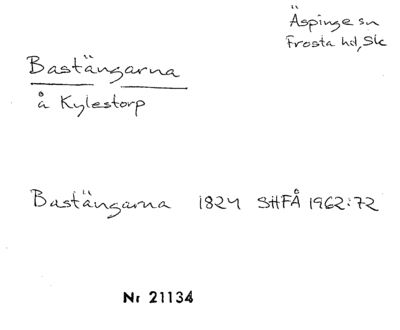 Äspinge sn
Frosta hd, Sk
Bastängarna
å Kylestorp
Bastängarna 1824 SHFÅ 1962:72
Nr 21134